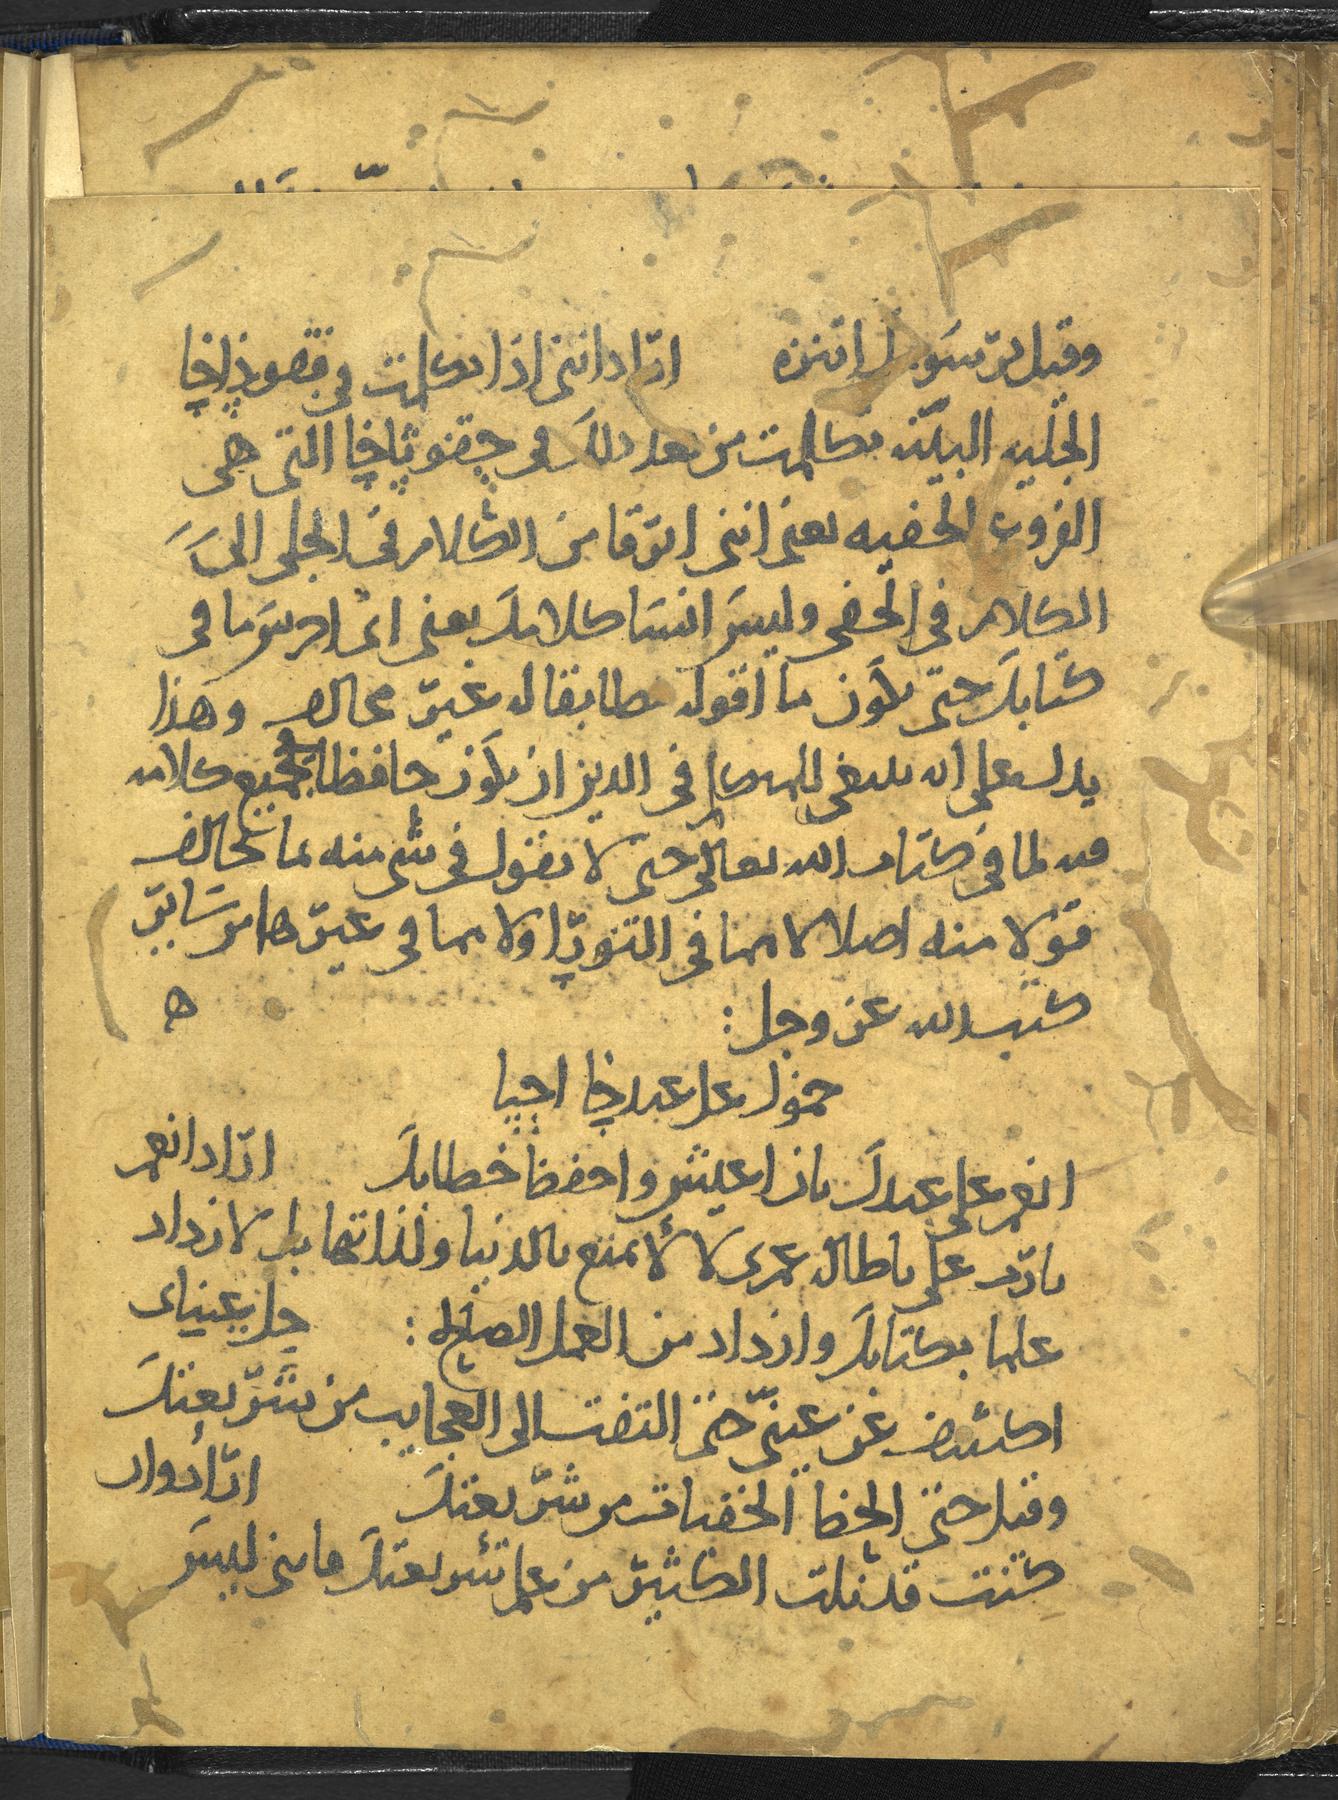 وقيل برسوبل اتنزه اراد انني اذا تكلمت في فقوذاخا
الجليه البينه تكلمت من بعد ذلك في حقوثاخا التي هي
الفروع الخفيه يعني انني اترقا من الكلام في الجلي الى
الكلام في الخفي وليس انسا كلامك يعني اني ادرس ما في
كتابك حتى يكون ما اقوله مطابقا له غير مخالف وهذا
يدل على انه ينبغي للمتكلم في الدين ان يكون حافظا لجميع كلامه
فيه لما في كتاب الله تعالى حتى لا يقول في شي منه بما يخالف
قولا منه اصلا لا مما في التوراه ولا مما في غيرها من ساير
كتب الله عز وجل : ه
جمول عل عبداخا احيا
انعم على عبدك بان اعيش واحفظ خطابك اراد انعم
يارب على باطالة عمري لا لاتمتع بالدنيا ولذاتها بل لازداد
علما بكتابك وازداد من العمل الصالح : جل عيناي
اكشف عن عيني حتى التفت الى العجايب من شريعتك
وقيل حتى الحظ الخفيات من شريعتك اراد وان
كنت قد نلت الكثير من علم شريعتك فانني ليس